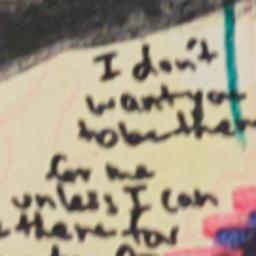 I don't
want you
to be there
for me
unless I can
there for